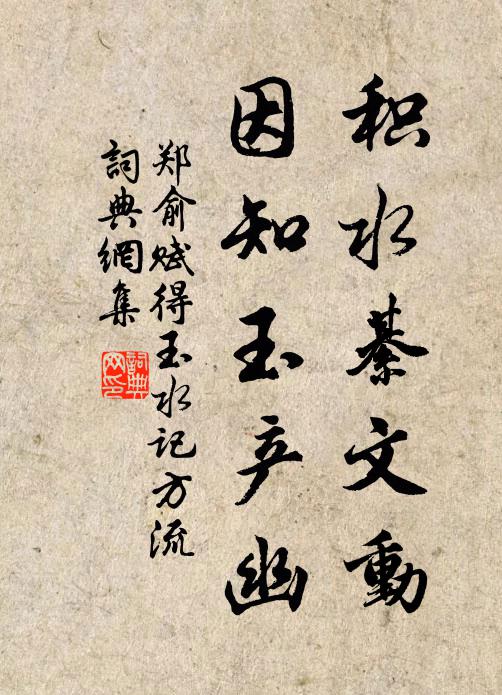 积水綦文動
因知玉产幽
郑俞赋得玉水记方流
詞典網集
詞典
网印